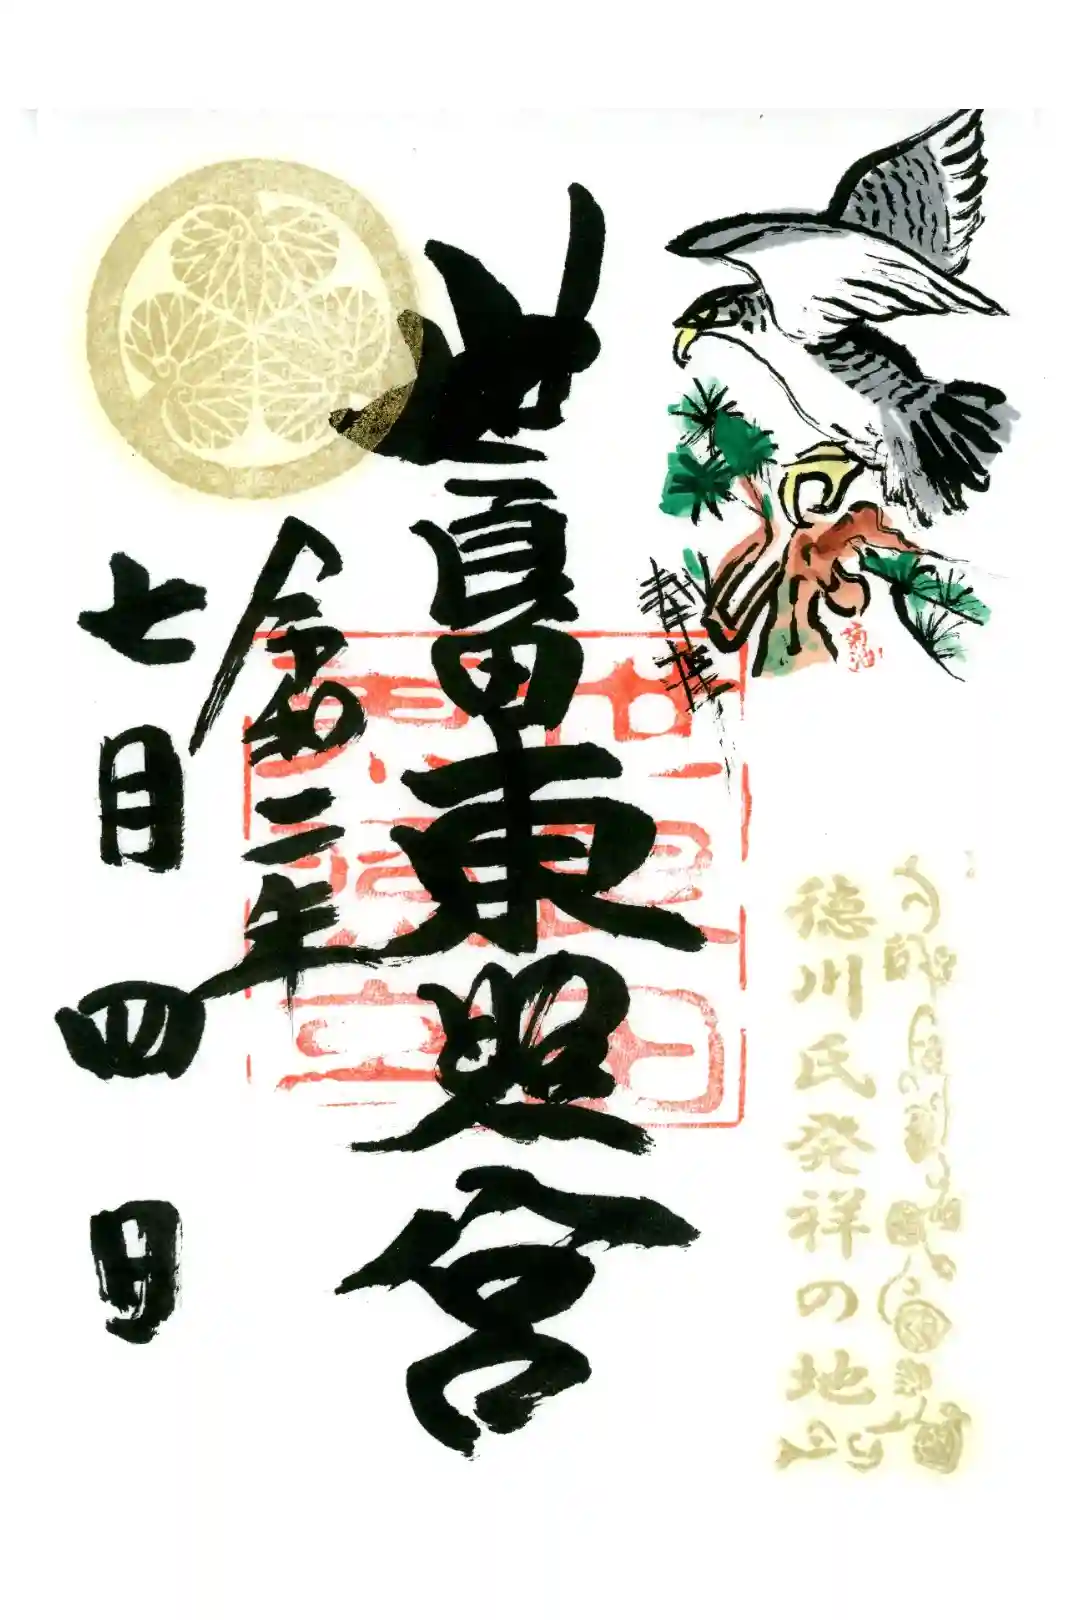 奉拝
徳川氏発祥の地
世良田東照宮
令和二年
七月四日